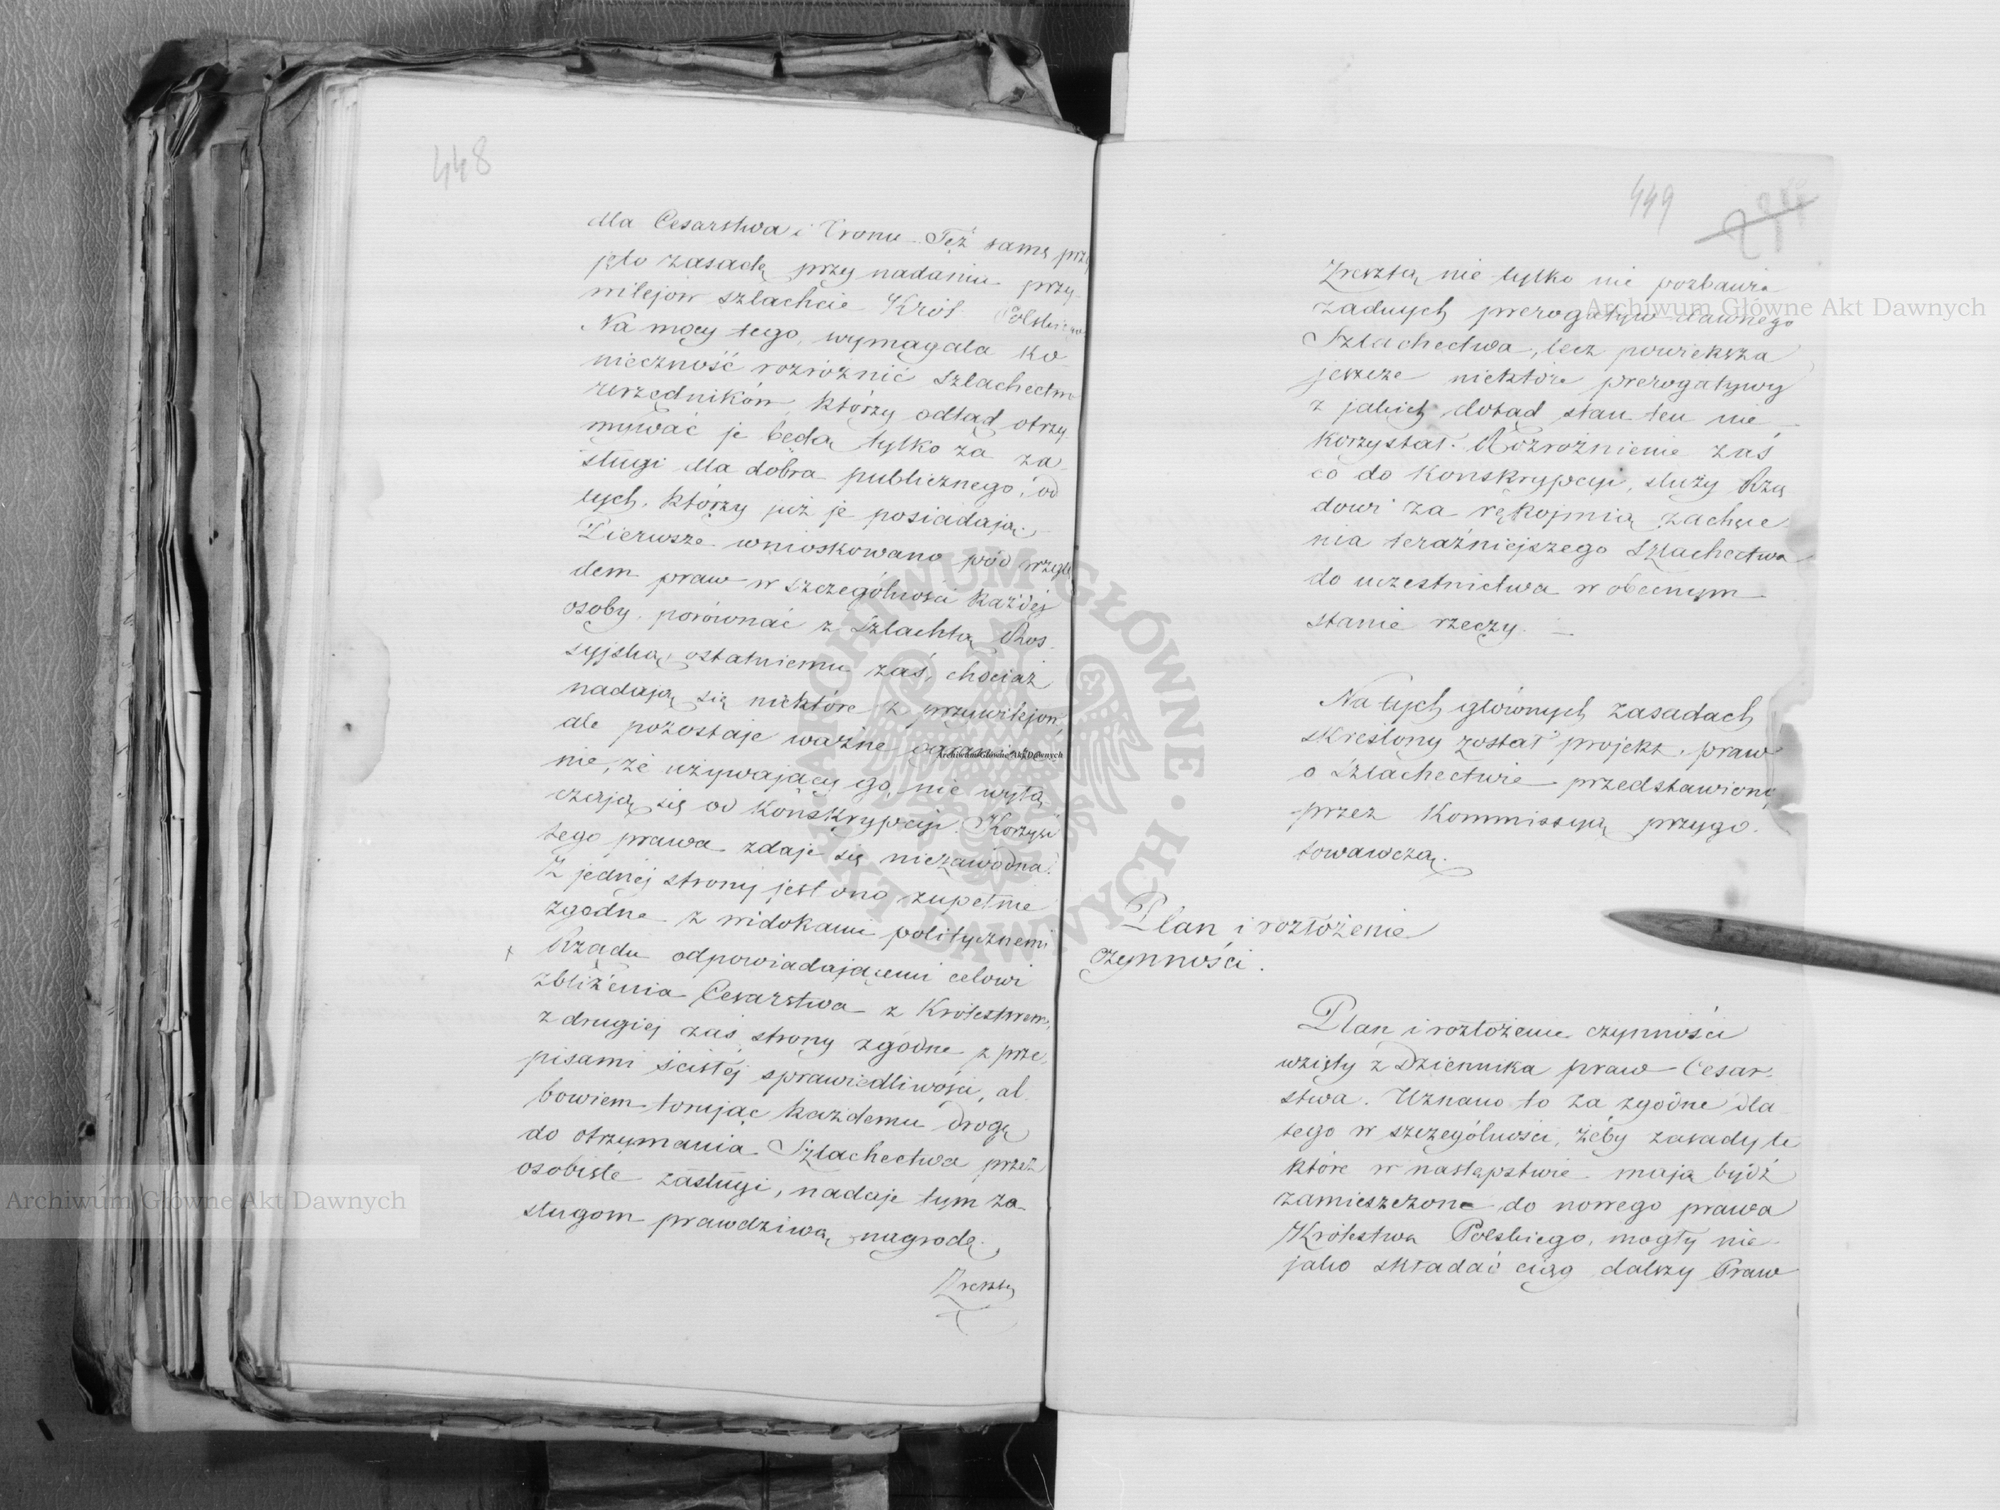 448
dla Cesarstwa i Tronu. Też samą przy
jęto zasadę przy nadaniu przy-
wilejów szlachcie Król. Polskiego
Na mocy tego, wymagała ko-
nieczność rozróżnić szlachectwo
urzędników, którzy odtąd otrzy-
mywać je będą tylko za za-
sługi dla dobra publicznego, od
tych, którzy już je posiadają.
Pierwsze wnioskowano pod wzglę
dem praw w szczególności każdéj
osoby, porównać z Szlachtą Ros-
syjską, ostatniemu zaś, chociaż
nadają się niektóre z przywilejów,
ale pozostaje ważne
nie, że używający go, nie wyłą
czają się od Konskrypcyi. Korzyść
tego prawa zdaje się niezawodna.
Z jednéj strony jest ono zupełnie
zgodne z widokami politycznemi
Rządu odpowiadającemi celowi
zbliżenia Cesarstwa z Królestwem,
z drugiéj zaś strony zgodne z prze-
pisami ścisłéj sprawiedliwości, al-
bowiem torując każdemu drogę
do otrzymania Szlachectwa przez
osobiste zasługi, nadaje tym za-
sługom prawdziwą nagrodę.
Zresztą
449
Zresztą nie tylko nie pozbawia
żadnych prerogatyw dawnego
Szlachectwa, lecz powiększa
jeszcze niektóre prerogatywy
z jakich dotąd stan ten nie
korzystał. Rozróżnienie zaś
co do Konskrypcyi, służy Rzą
dowi za rękojmią zachęce
nia teraźniejszego Szlachectwa
do uczestnictwa w obecnym
stanie rzeczy. —
Na tych głównych zasadach
skreślony został projekt praw
o Szlachectwie przedstawiony
przez Kommissyą przygo-
towawczą.
Plan i rozłożenie
czynności.
Plan i rozłożenie czynności
wzięty z Dziennika praw Cesar-
stwa. Uznano to za zgodne dla
tego w szczególności, żeby zasady te
które w następstwie mają bydź
zamieszczone do nowego prawa
Królestwa Polskiego, mogły nie-
jako składać ciąg dalszy Praw
Archiwum Główne Akt Dawnych
Archiwum Główne Akt Dawnych
Archiwum Główne Akt Dawnych
ARCHIWUM GŁÓWNE AKT DAWNYCH